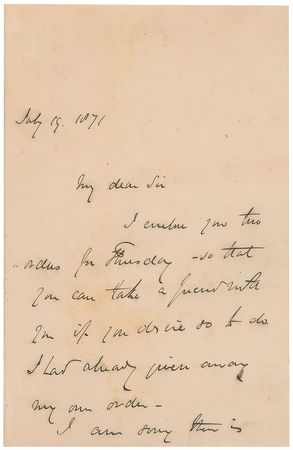 July 19. 1871
My dear Sir
I enclose you two
orders for Thursday - so that
you can take a friend with
you if you desire so to do
I had already given away
my own order -
I am sorry there is